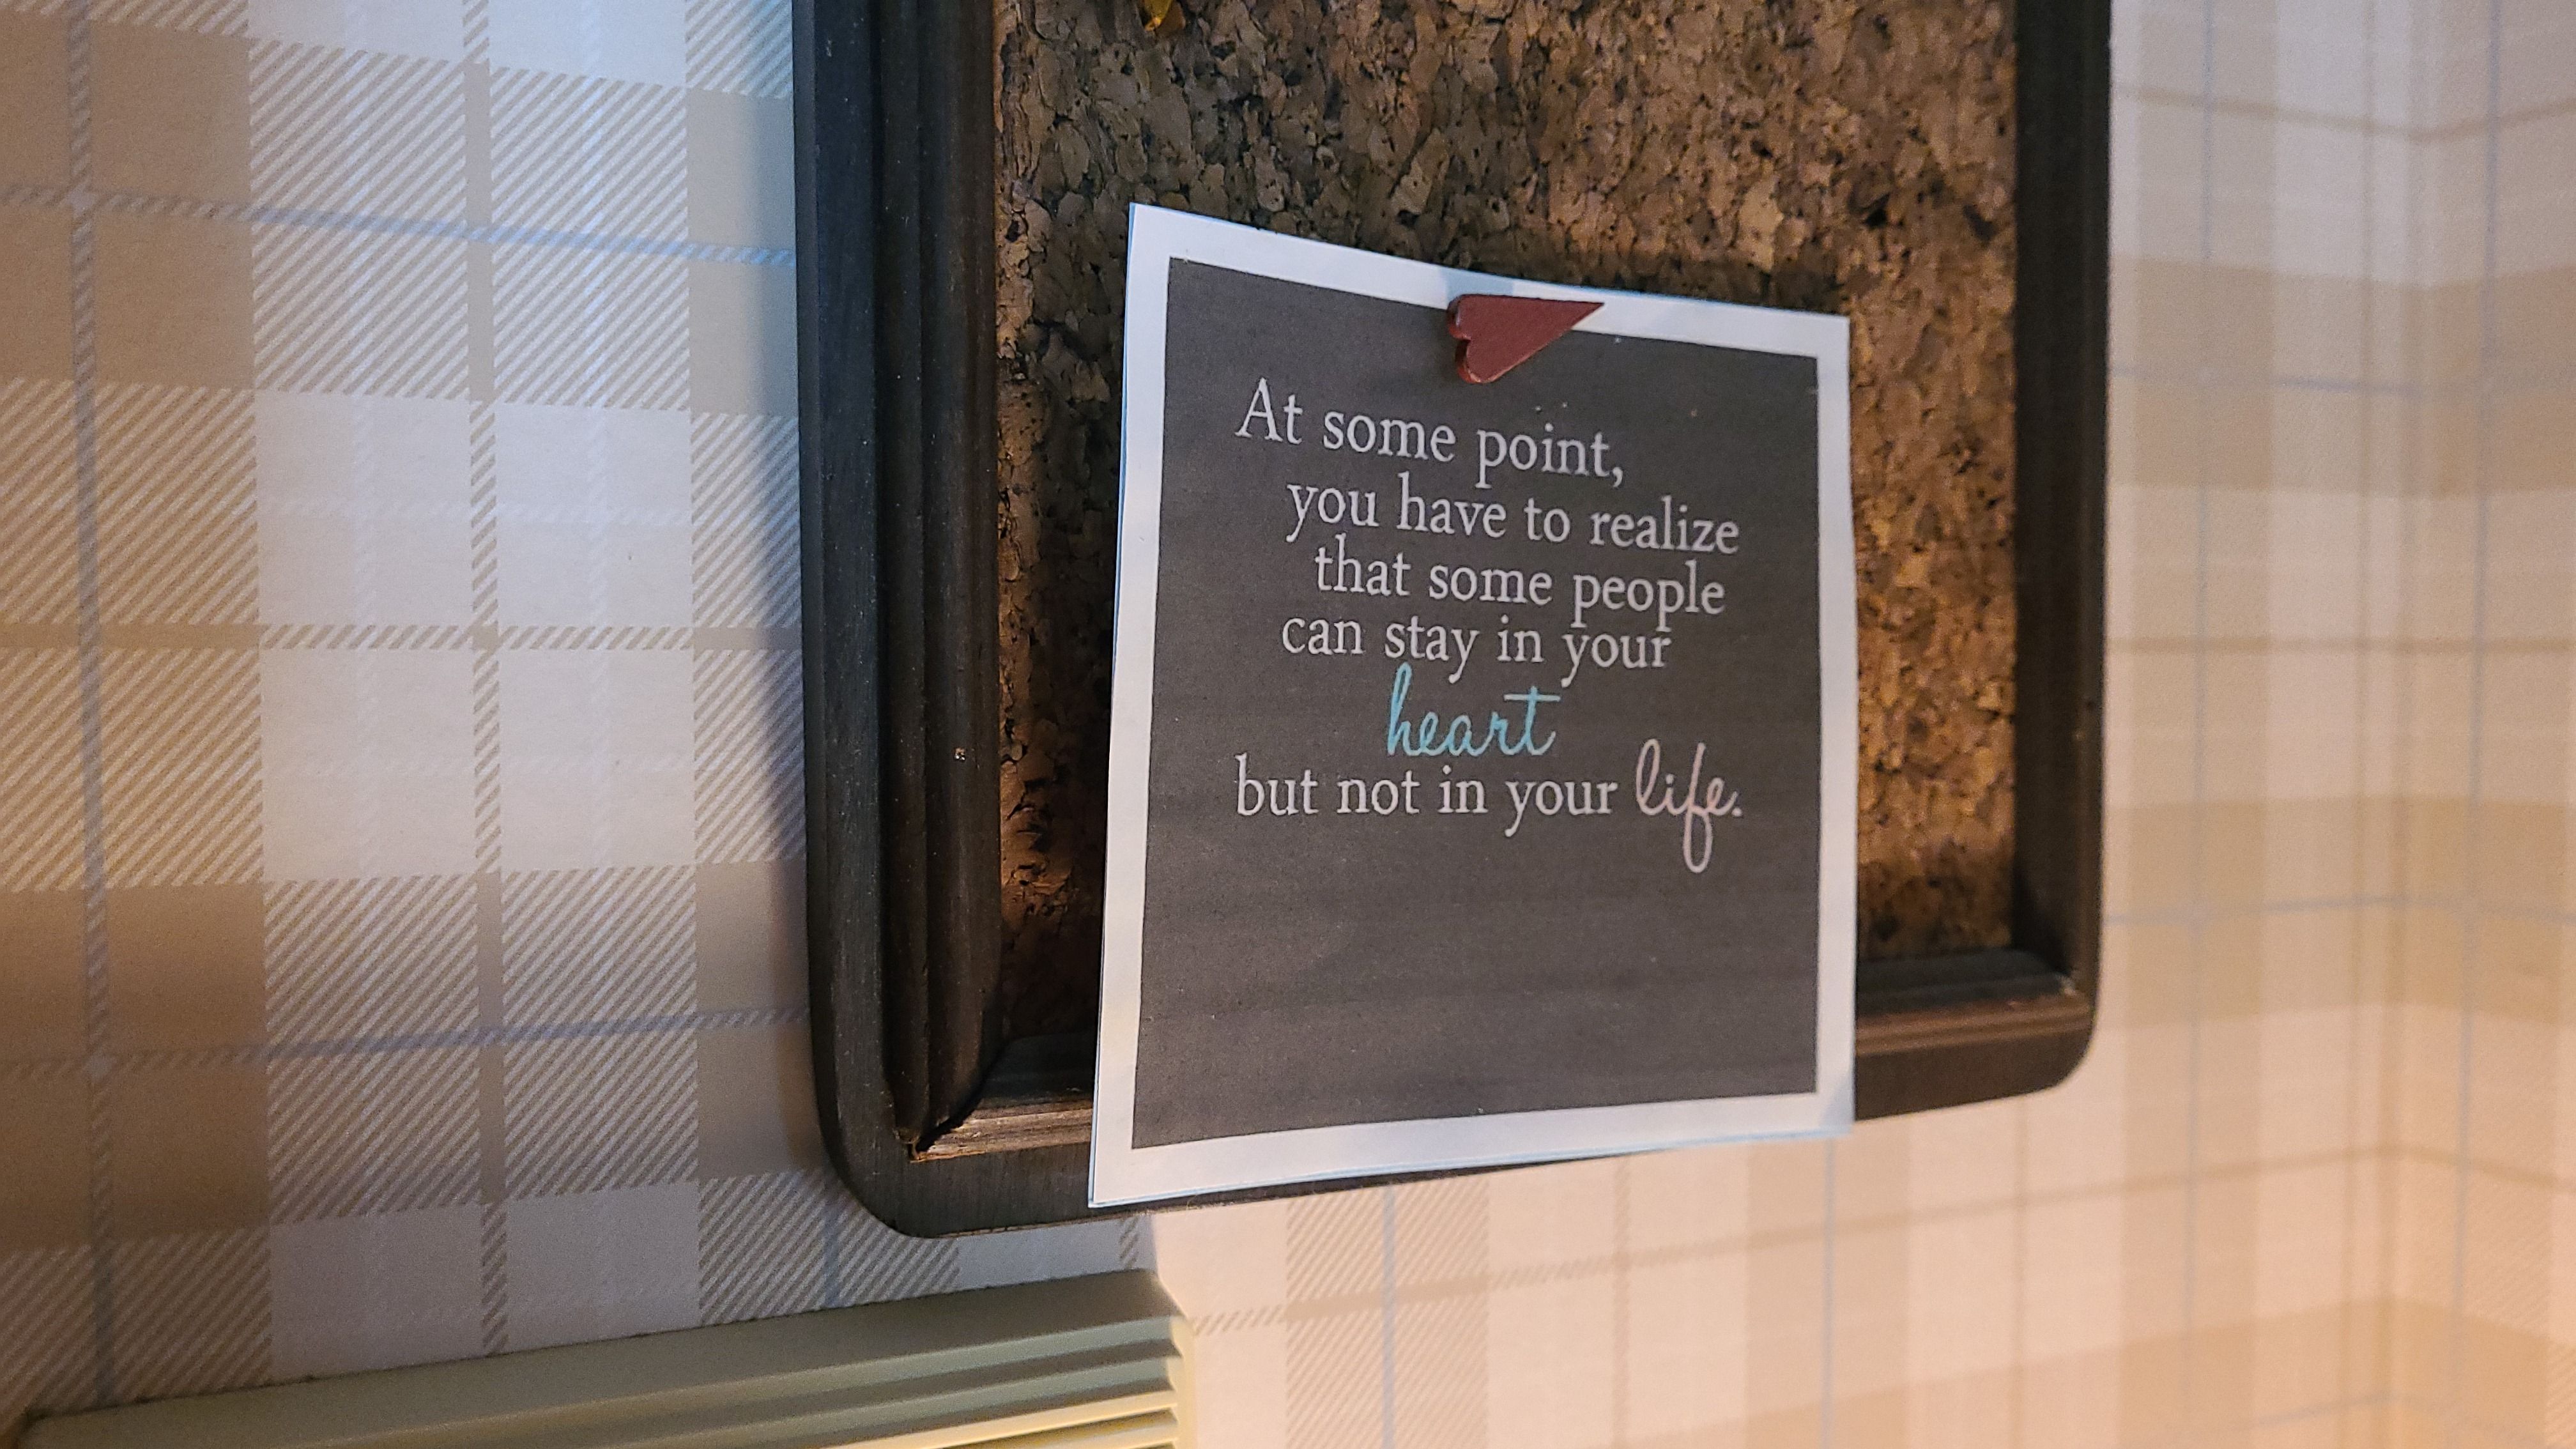 At some point,
you have to realize
that some people
can stay in your
heart
but not in your life.